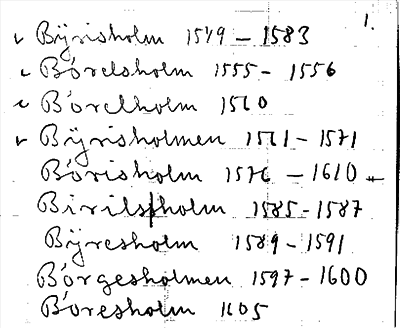 1.
v Bÿrisholm 1549 – 1583
v Bórelsholm 1555 - 1556
v Bórelholm 1560
v Bÿrisholmen 1561 - 1571
Bórisholm 1576 – 1610
Birilsholm 1585 - 1587
Bÿresholm 1589 - 1591
Bórgesholmen 1597 - 1600
Bóresholm 1605